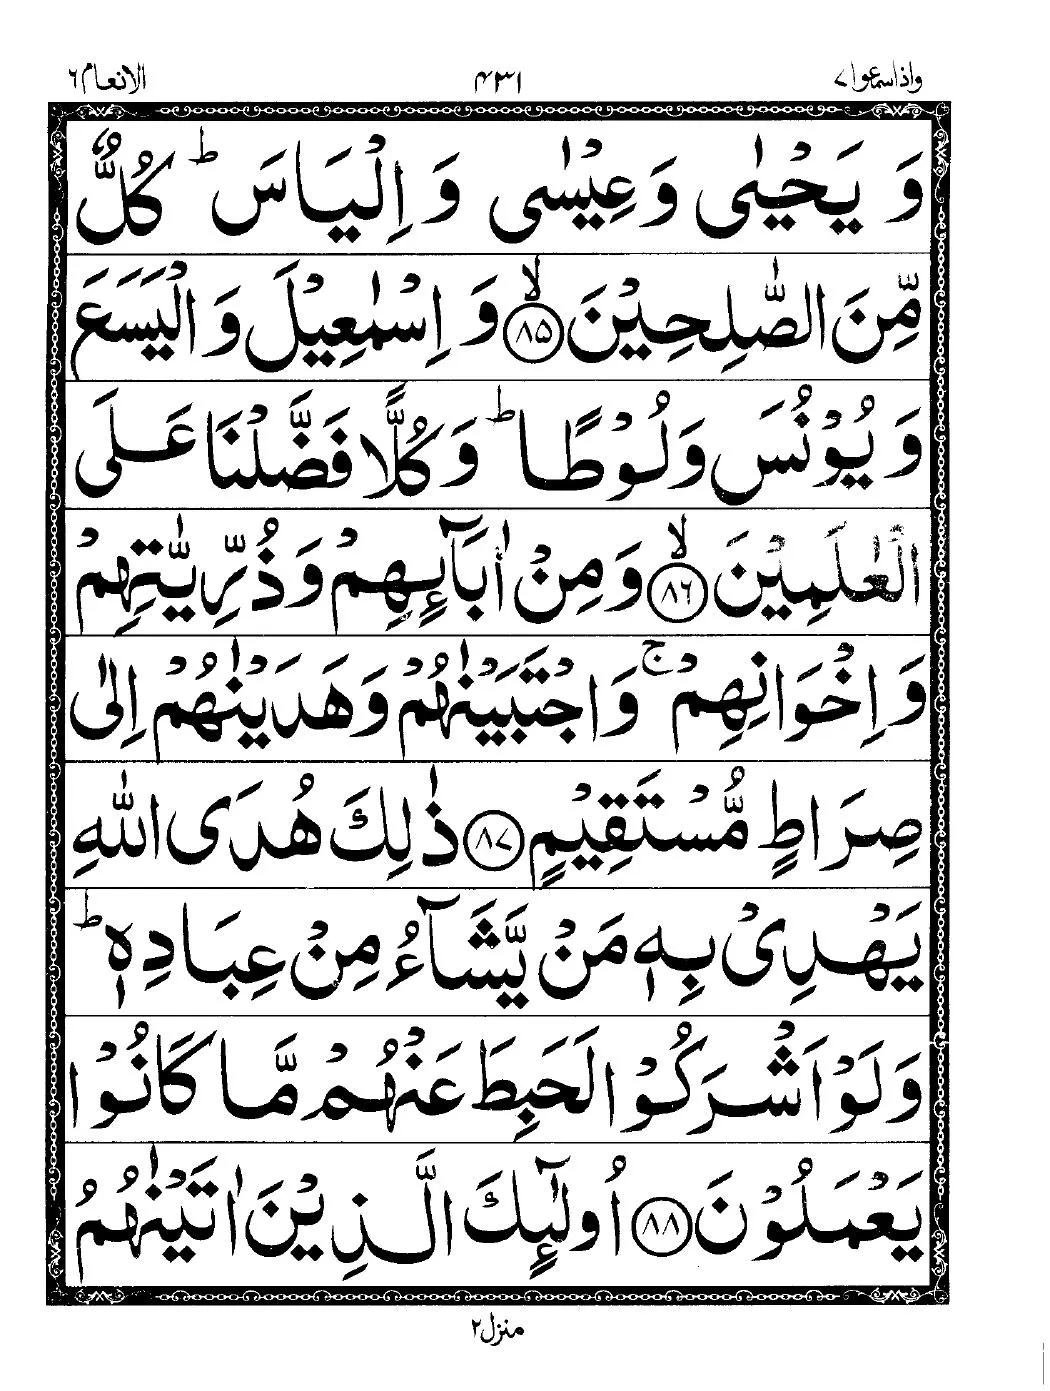 واذاسمعوا ٧ ۴۳۱ الانعام ٦
وَ يَحْيٰى وَعِيْسٰى وَ اِلْيَاسَ ؕ كُلٌّ
مِّنَ الصّٰلِحِيْنَ ۙ﴿٨٥﴾ وَ اِسْمٰعِيْلَ وَ الْيَسَعَ
وَ يُوْنُسَ وَ لُوْطًا ؕ وَ كُلًّا فَضَّلْنَا عَلَى
الْعٰلَمِيْنَ ۙ﴿٨٦﴾ وَ مِنْ اٰبَآئِهِمْ وَ ذُرِّيّٰتِهِمْ
وَ اِخْوَانِهِمْ ۚ وَ اجْتَبَيْنٰهُمْ وَ هَدَيْنٰهُمْ اِلٰى
صِرَاطٍ مُّسْتَقِيْمٍ ﴿٨٧﴾ ذٰلِكَ هُدَى اللّٰهِ
يَهْدِيْ بِهٖ مَنْ يَّشَآءُ مِنْ عِبَادِهٖ ؕ
وَ لَوْ اَشْرَكُوْا لَحَبِطَ عَنْهُمْ مَّا كَانُوْا
يَعْمَلُوْنَ ﴿٨٨﴾ اُولٰٓئِكَ الَّذِيْنَ اٰتَيْنٰهُمُ
منزل ٢